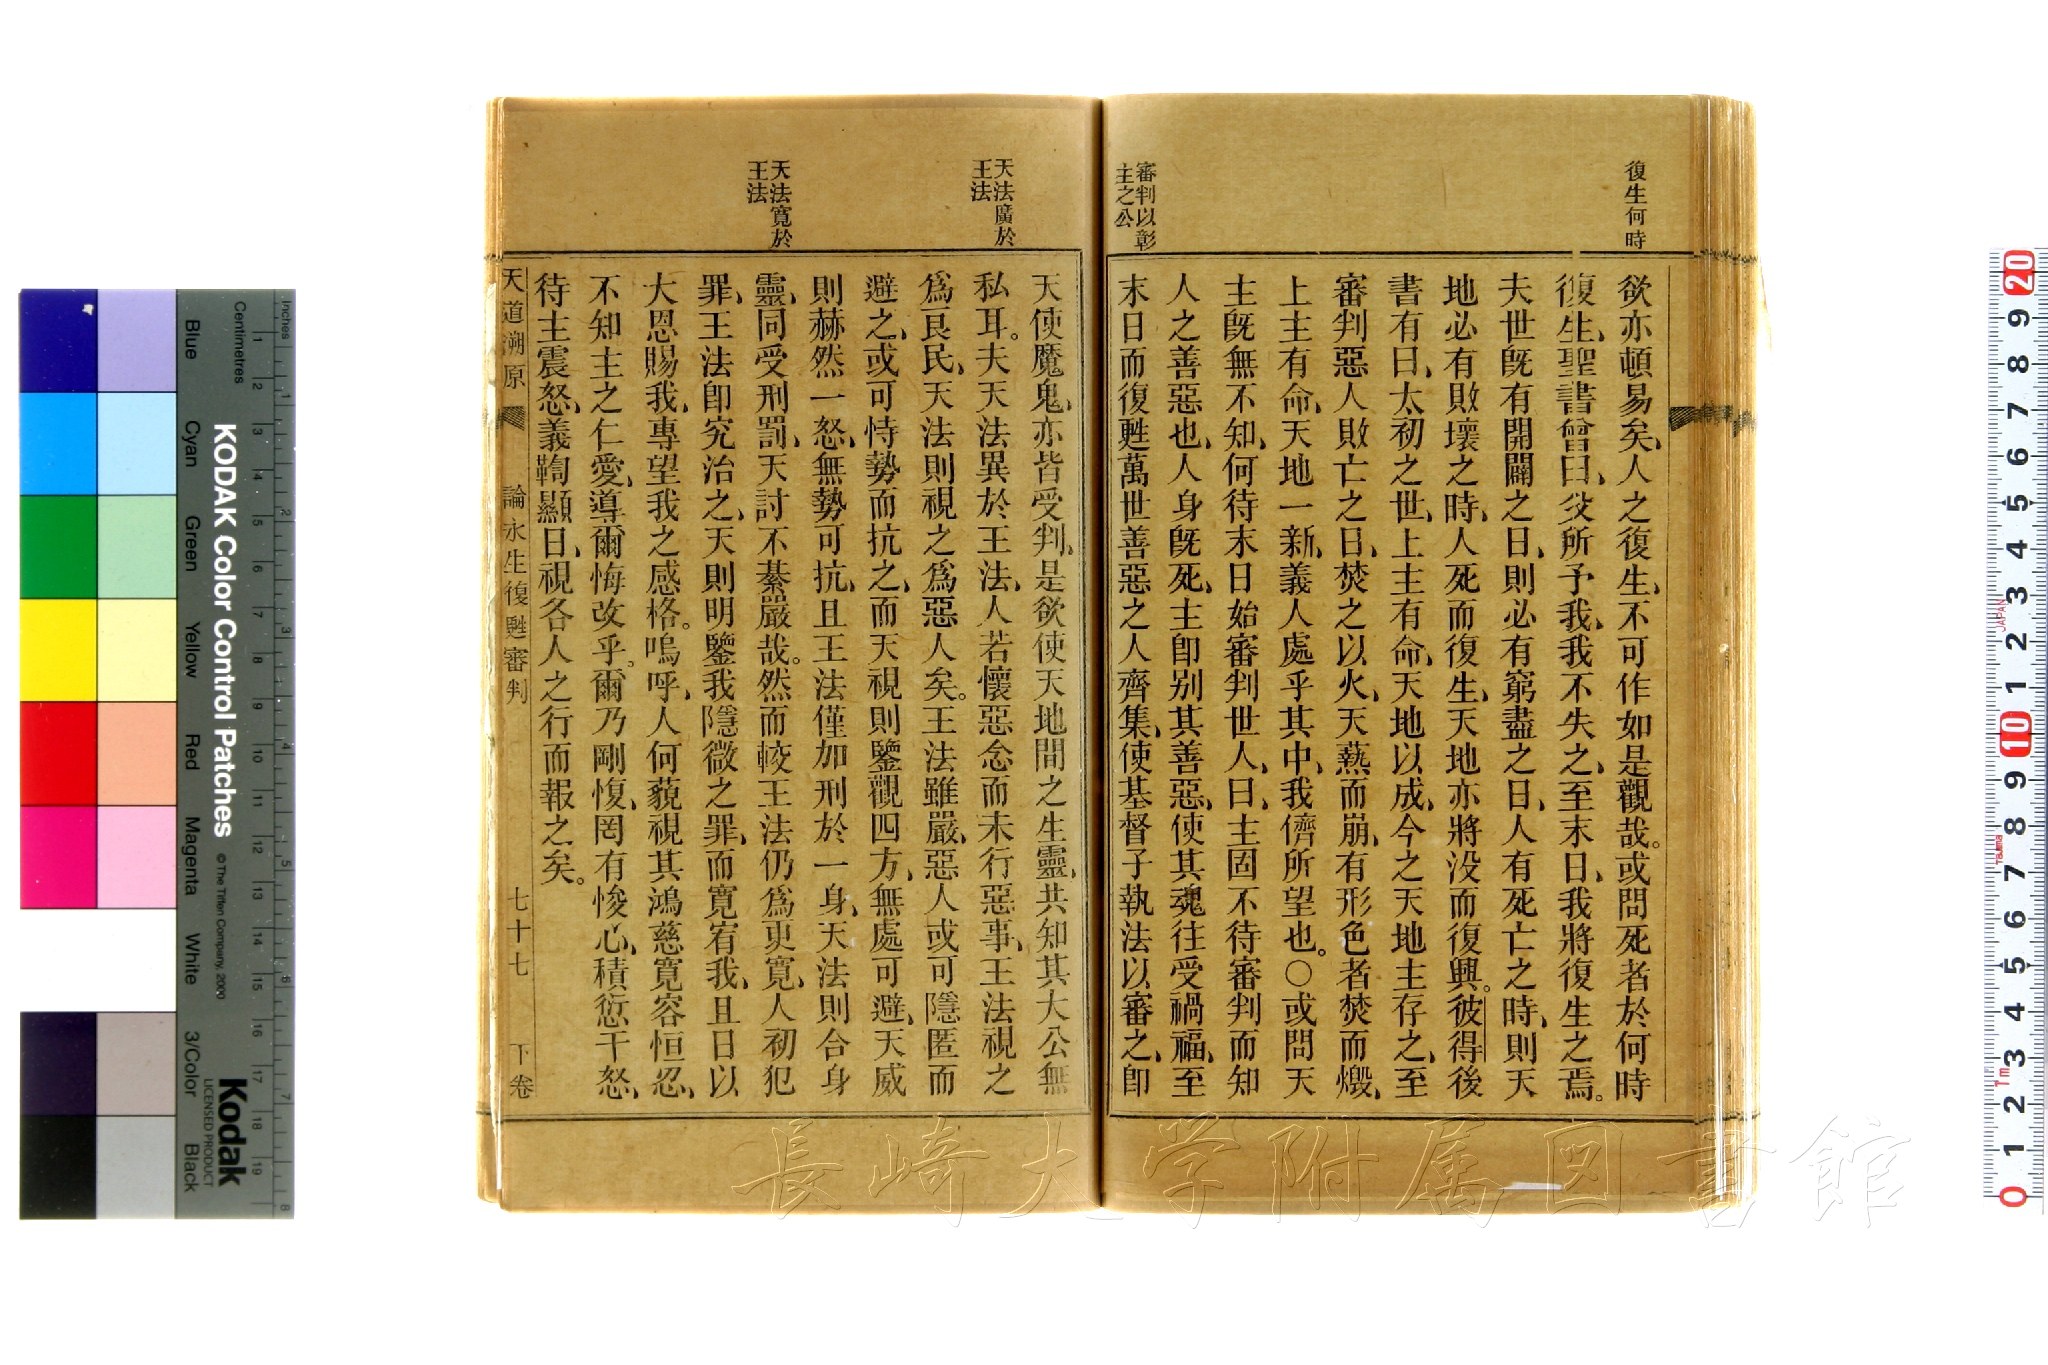 復生何時
欲亦頓易矣、人之復生、不可作如是觀哉。或問死者於何時
復生、聖書曾曰、父所予我、我不失之、至末日、我將復生之焉。
夫世旣有開闢之日、則必有窮盡之日、人有死亡之時、則天
地必有敗壞之時、人死而復生、天地亦將没而復興。彼得後
書有曰、太初之世、上主有命、天地以成、今之天地主存之、至
審判惡人敗亡之日、焚之以火、天爇而崩、有形色者焚而燬、
上主有命、天地一新、義人處乎其中、我儕所望也。○或問天
主旣無不知、何待末日始審判世人、曰、主固不待審判而知
人之善惡也、人身旣死、主卽别其善惡、使其魂往受禍福、至
末日而復甦萬世善惡之人齊集、使基督子執法以審之、卽
審判以彰
主之公
天使魔鬼、亦皆受判、是欲使天地間之生靈、共知其大公無
私耳。夫天法異於王法、人若懷惡念而未行惡事、王法視之
爲良民、天法則視之爲惡人矣。王法雖嚴、惡人或可隱匿而
避之、或可恃勢而抗之、而天視則鑒觀四方、無處可避、天威
則赫然一怒、無勢可抗、且王法僅加刑於一身、天法則合身
靈、同受刑罰、天討不綦嚴哉。然而較王法仍爲更寬、人初犯
罪、王法卽究治之、天則明鑒我隱微之罪、而寬宥我、且日以
大恩賜我、專望我之感格。嗚呼、人何藐視其鴻慈寬容恒忍、
不知主之仁愛、導爾悔改乎。爾乃剛愎、罔有悛心、積愆干怒、
待主震怒、義鞫顯日、視各人之行而報之矣。
天法廣於
王法
天法寬於
王法
天道溯原 論永生復甦審判 七十七 下卷
長崎大学附属図書館
KODAK Color Control Patches
© The Tiffen Company, 2000
Kodak
LICENSED PRODUCT
Inches
Centimetres
Blue
Cyan
Green
Yellow
Red
Magenta
White
3/Color
Black